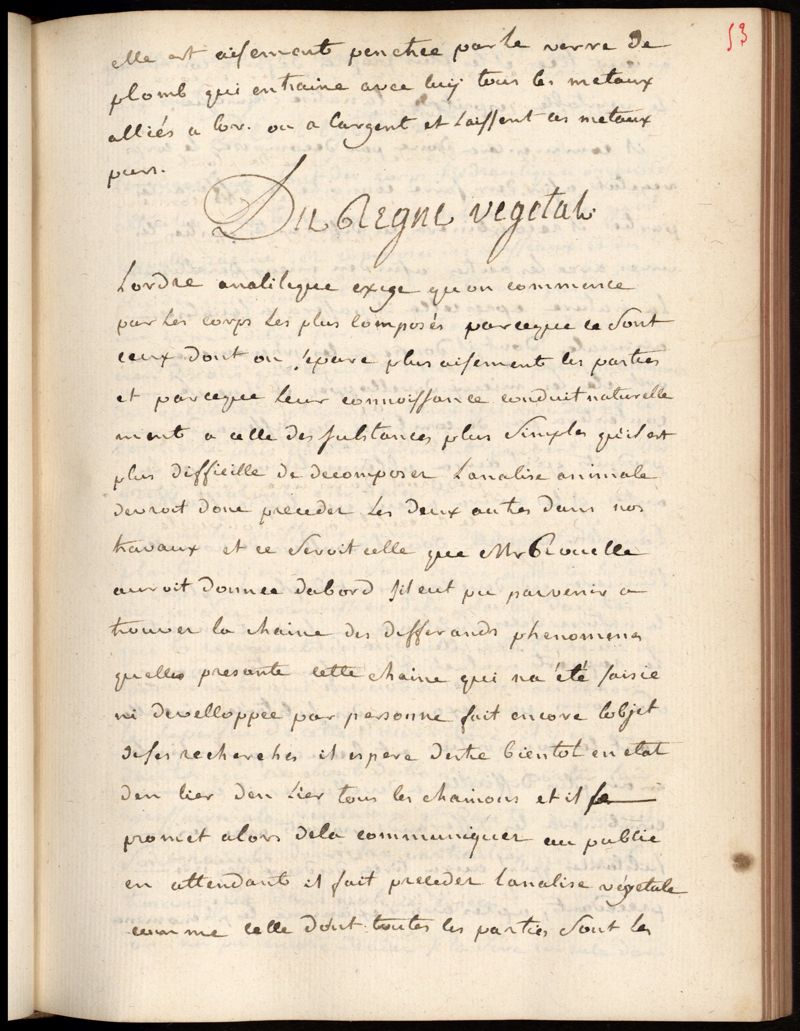 53
elle est aisement penetrée par le verre de
plomb qui entraine avec luy tous les metaux
alliés a lor. ou a largent et laissent ces metaux
purs.
Du Regne vegetal.
Lordre analitique exige quon commence
par les corps les plus composés parceque ce sont
ceux dont on separe plus aisement les parties
et parceque leur connoissance conduit naturelle
ment a celle des substances plus simples quil est
plus difficille de decomposer Lanalise animale
devroit donc preceder les deux autes dans nos
travaux et ce seroit celle que Mr Rouelle
auroit donnee dabord sil eut pu parvenir a
trouver la chaine des differands phenomenes
quelles presante cette chaine qui na été saisie
ni developpée par personne fait encore lobjet
de ses recherches il espere destre bientot en etat
den lier den lier tous les chainons et il se
promet alors dela communiquer au public
en attendant il fait preceder lanalise végetale
comme celle dont toutes les parties sont les